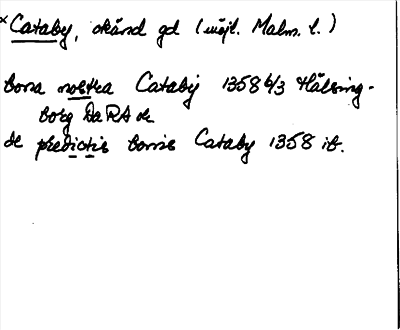 × Cataby, okänd gd (möjl. Malm. l.)
bona nostra Cataby 1358 6/3 Hälsing-
borg DaRA or
de predictis bonis Cataby 1358 ib.